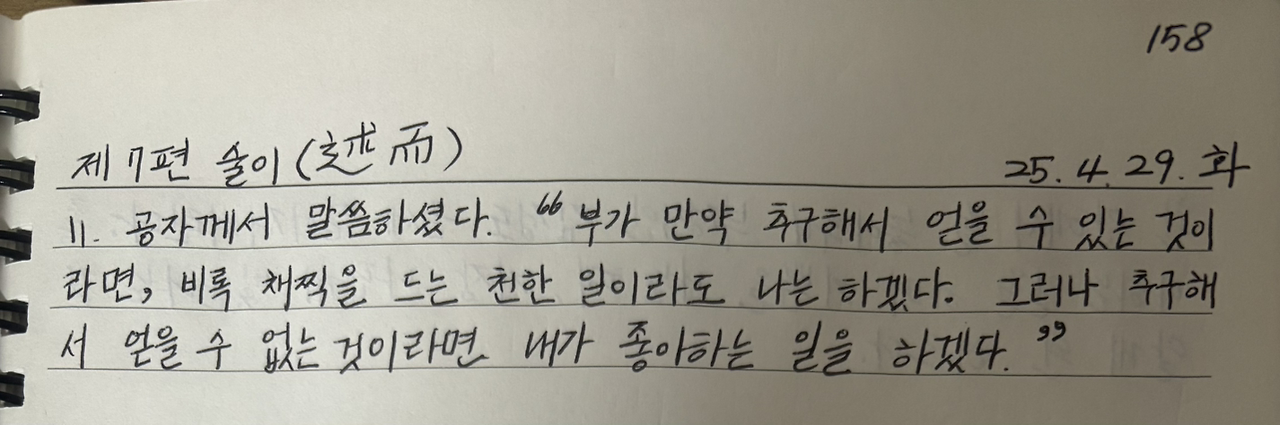 158
제 7편 술이 (述而) 25. 4. 29. 화
11. 공자께서 말씀하셨다. "부가 만약 추구해서 얻을 수 있는 것이
라면, 비록 채찍을 드는 천한 일이라도 나는 하겠다. 그러나 추구해
서 얻을 수 없는 것이라면 내가 좋아하는 일을 하겠다."